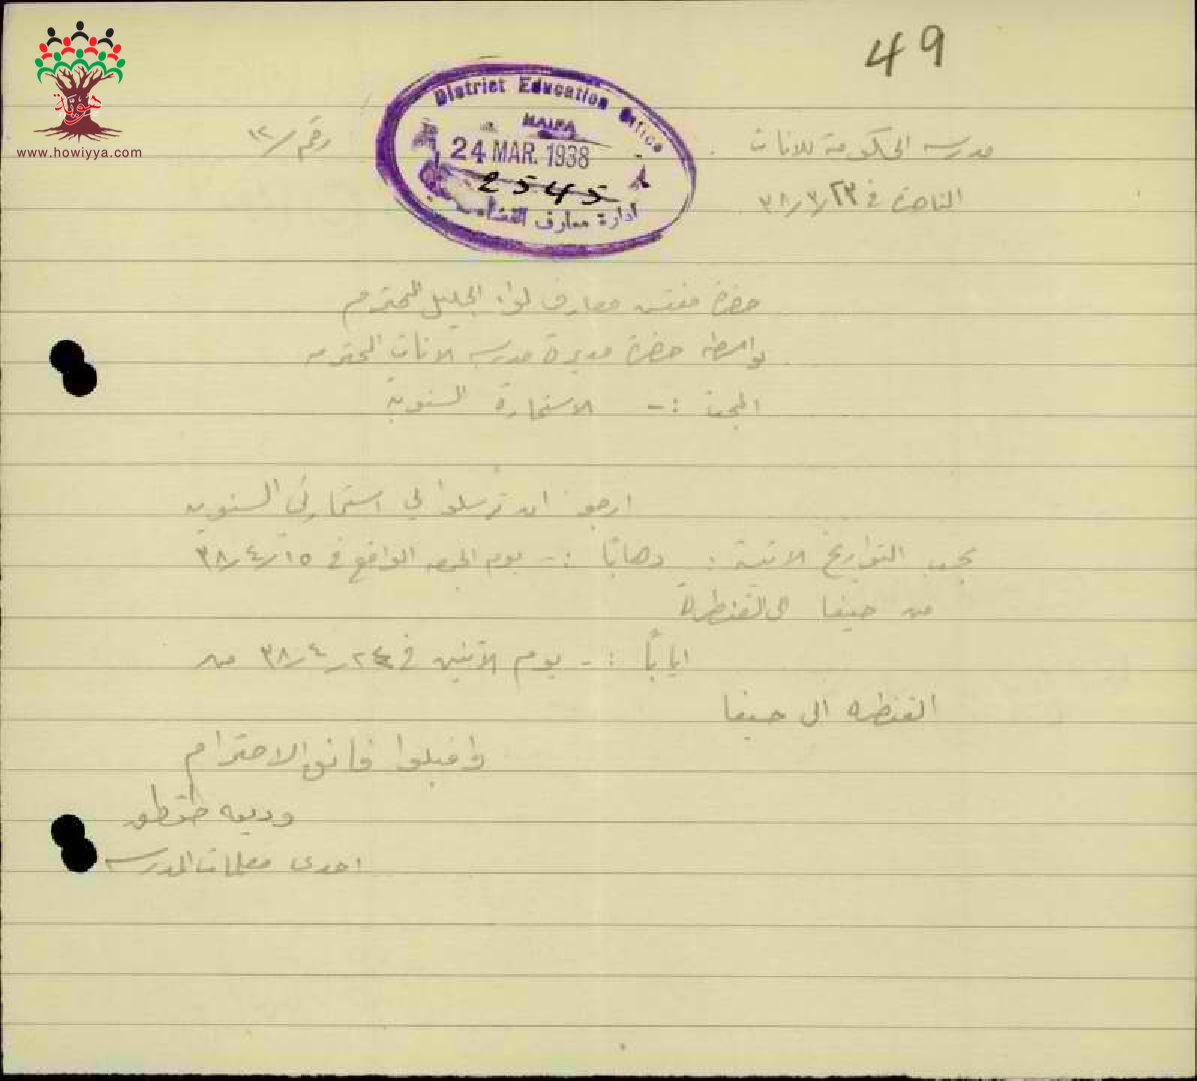 49
هوية
www.howiyya.com
District Education Office
HAIFA
24 MAR. 1938
2545
ادارة معارف
مدرسة الحكومة للاناث
رقم /١٢
الناصرة في ٢٣/٣/٣٨
حضرة مفتش معارف لواء الجليل المحترم
بواسطة حضرة مديرة مدرسة الاناث المحترمه
البحث :- الاستمارة السنوية
ارجو ان ترسلوا لي استمارتي السنويه
بحسب التواريخ الاتية : ذهابًا :- يوم الجمعه الواقع في ١٥/٤/٣٨
من حيفا الى القنطرة
ايابًا :- يوم الاثنين في ٢٤/٤/٣٨ من
القنطره الى حيفا
واقبلوا فائق الاحترام
وديعه
احدى معلمات المدرسه